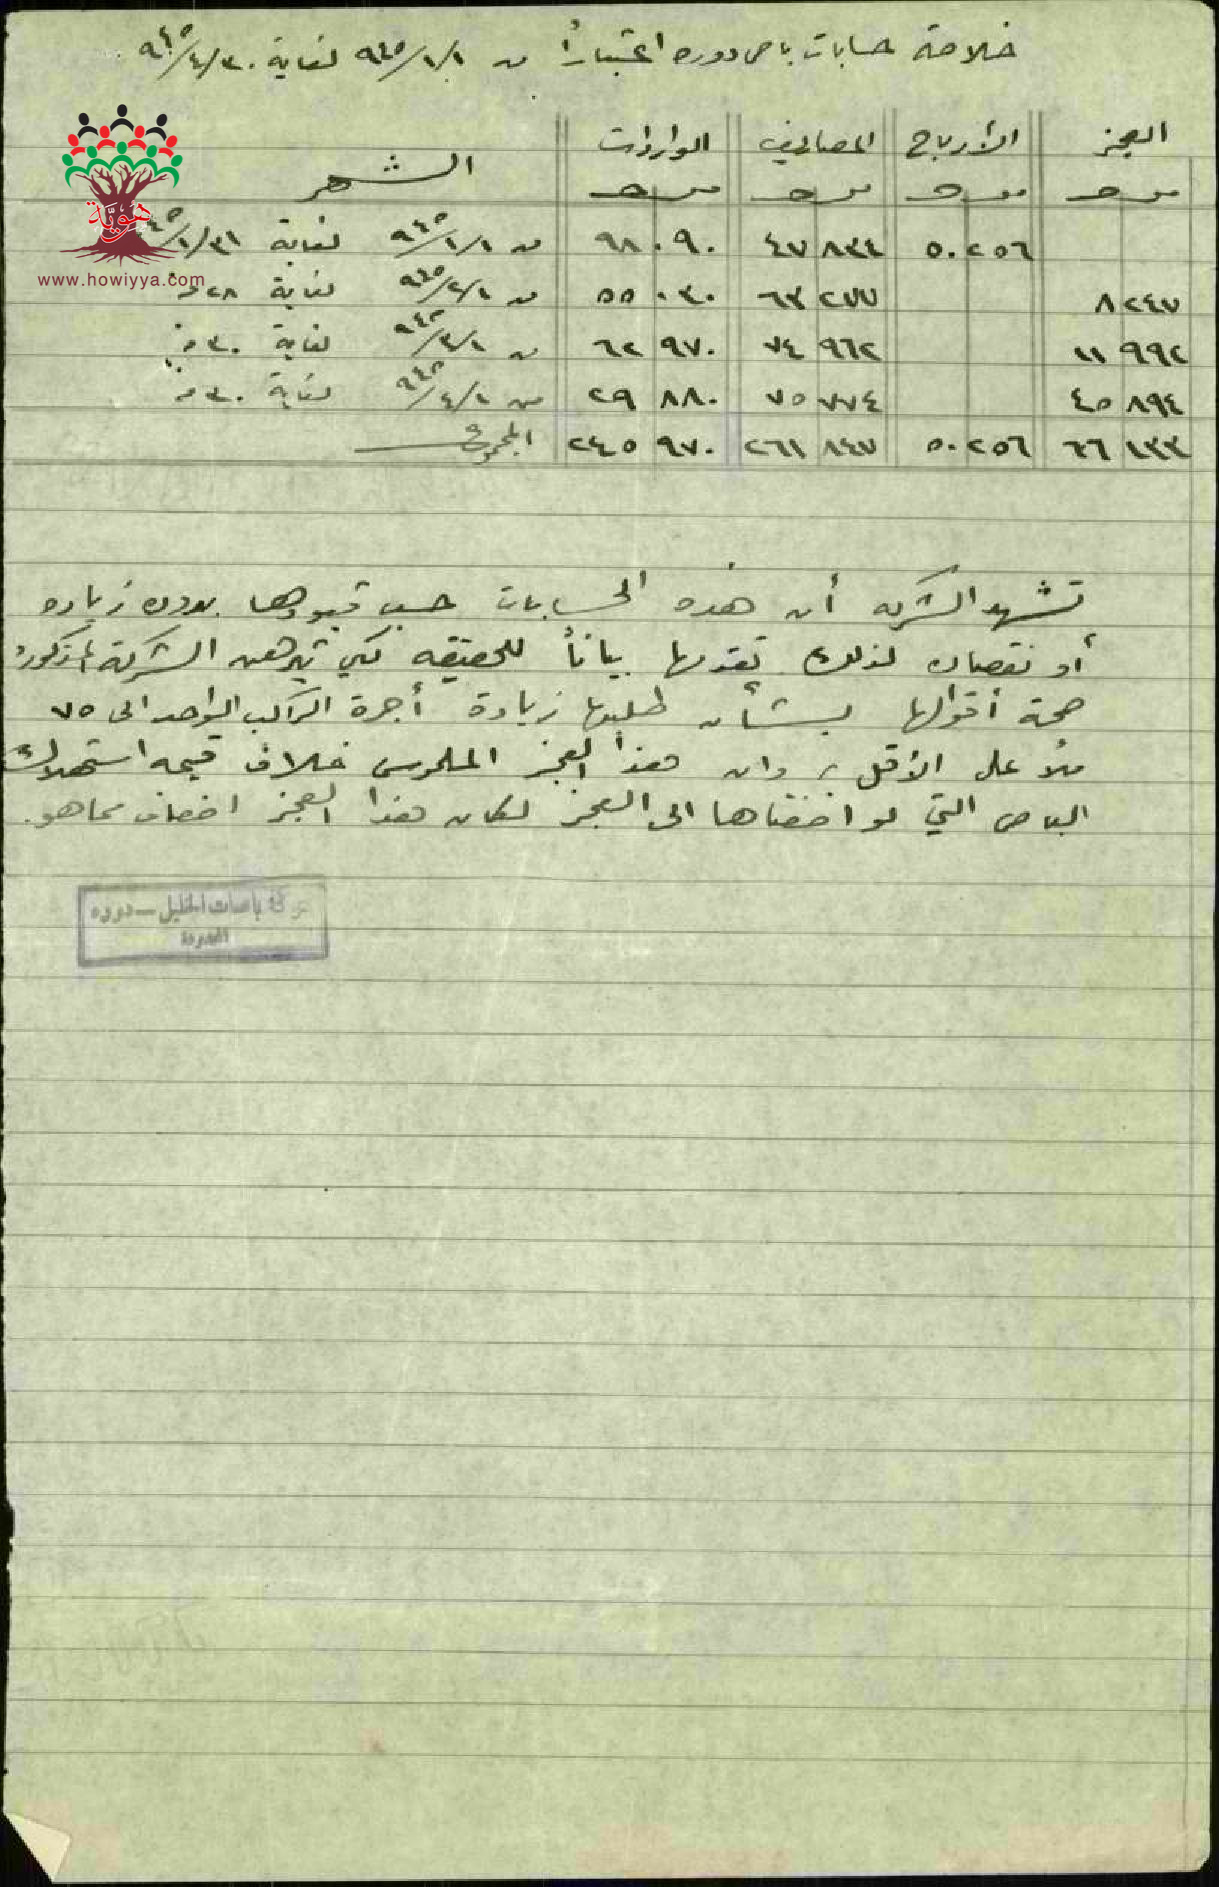 خلاصة حسابات باص دوره اعتباراً من ١/١/٩٤٥ لغاية ٣٠/٤/٩٤٥
العجز الأرباح المصاريف الواردات الشهر
هويّة
www.howiyya.com
٥٠ ٢٥٦ ٤٧ ٨٣٤ ٩٨ ٠٩٠ من ١/١/٩٤٥ لغاية ٣١/١/٩٤٥
٨ ٢٤٧ ٦٣ ٢٧٧ ٥٥ ٠٣٠ من ١/٢/٩٤٥ لغاية ٢٨ منه
١١ ٩٩٢ ٧٤ ٩٦٢ ٦٢ ٩٧٠ من ١/٣/٩٤٥ لغاية ٣٠ منه
٤٥ ٨٩٤ ٧٥ ٧٧٤ ٢٩ ٨٨٠ من ١/٤/٩٤٥ لغاية ٣٠ منه
٦٦ ١٣٣ ٥٠ ٢٥٦ ٢٦١ ٨٤٧ ٢٤٥ ٩٧٠ المجموع
تشهد الشركه أن هذه الحسابات حسب قيودها بدون زياده
أو نقصان لذلك تقدمها بياناً للحقيقه لكي تبرهن الشركة المذكورة
صحة أقوالها بشأن طلبها زيادة أجرة الراكب الواحد الى ٧٥
ملاً على الأقل ، وان هذا العجز الملموس خلاف قيمه استهلاك
الباص التي لو اضفناها الى العجز لكان هذا العجز اضعاف مما هو.
شركة باصات الخليل — دوره
المحدودة